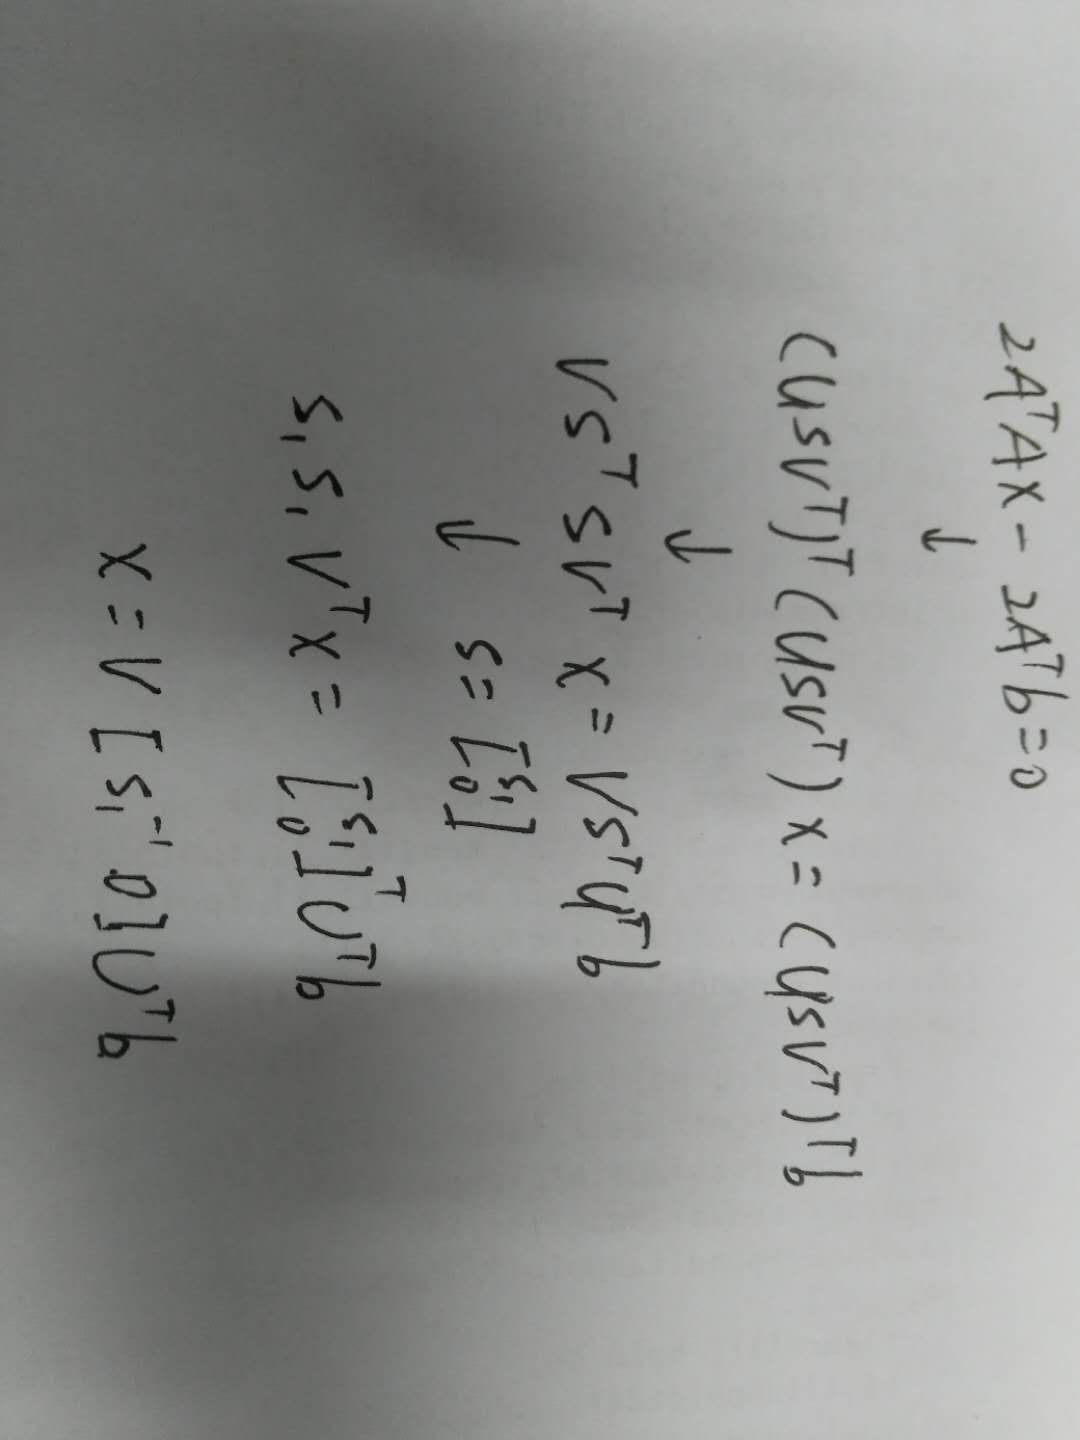 2AᵀAx - 2Aᵀb = 0
↓
(USVᵀ)ᵀ(USVᵀ)x = (USVᵀ)ᵀb
↓
VSᵀSVᵀx = VSᵀUᵀb
↓ S = [S₁ 0]
S₁S₁Vᵀx = [S₁ 0]ᵀUᵀb
x = V[S₁⁻¹ 0]Uᵀb